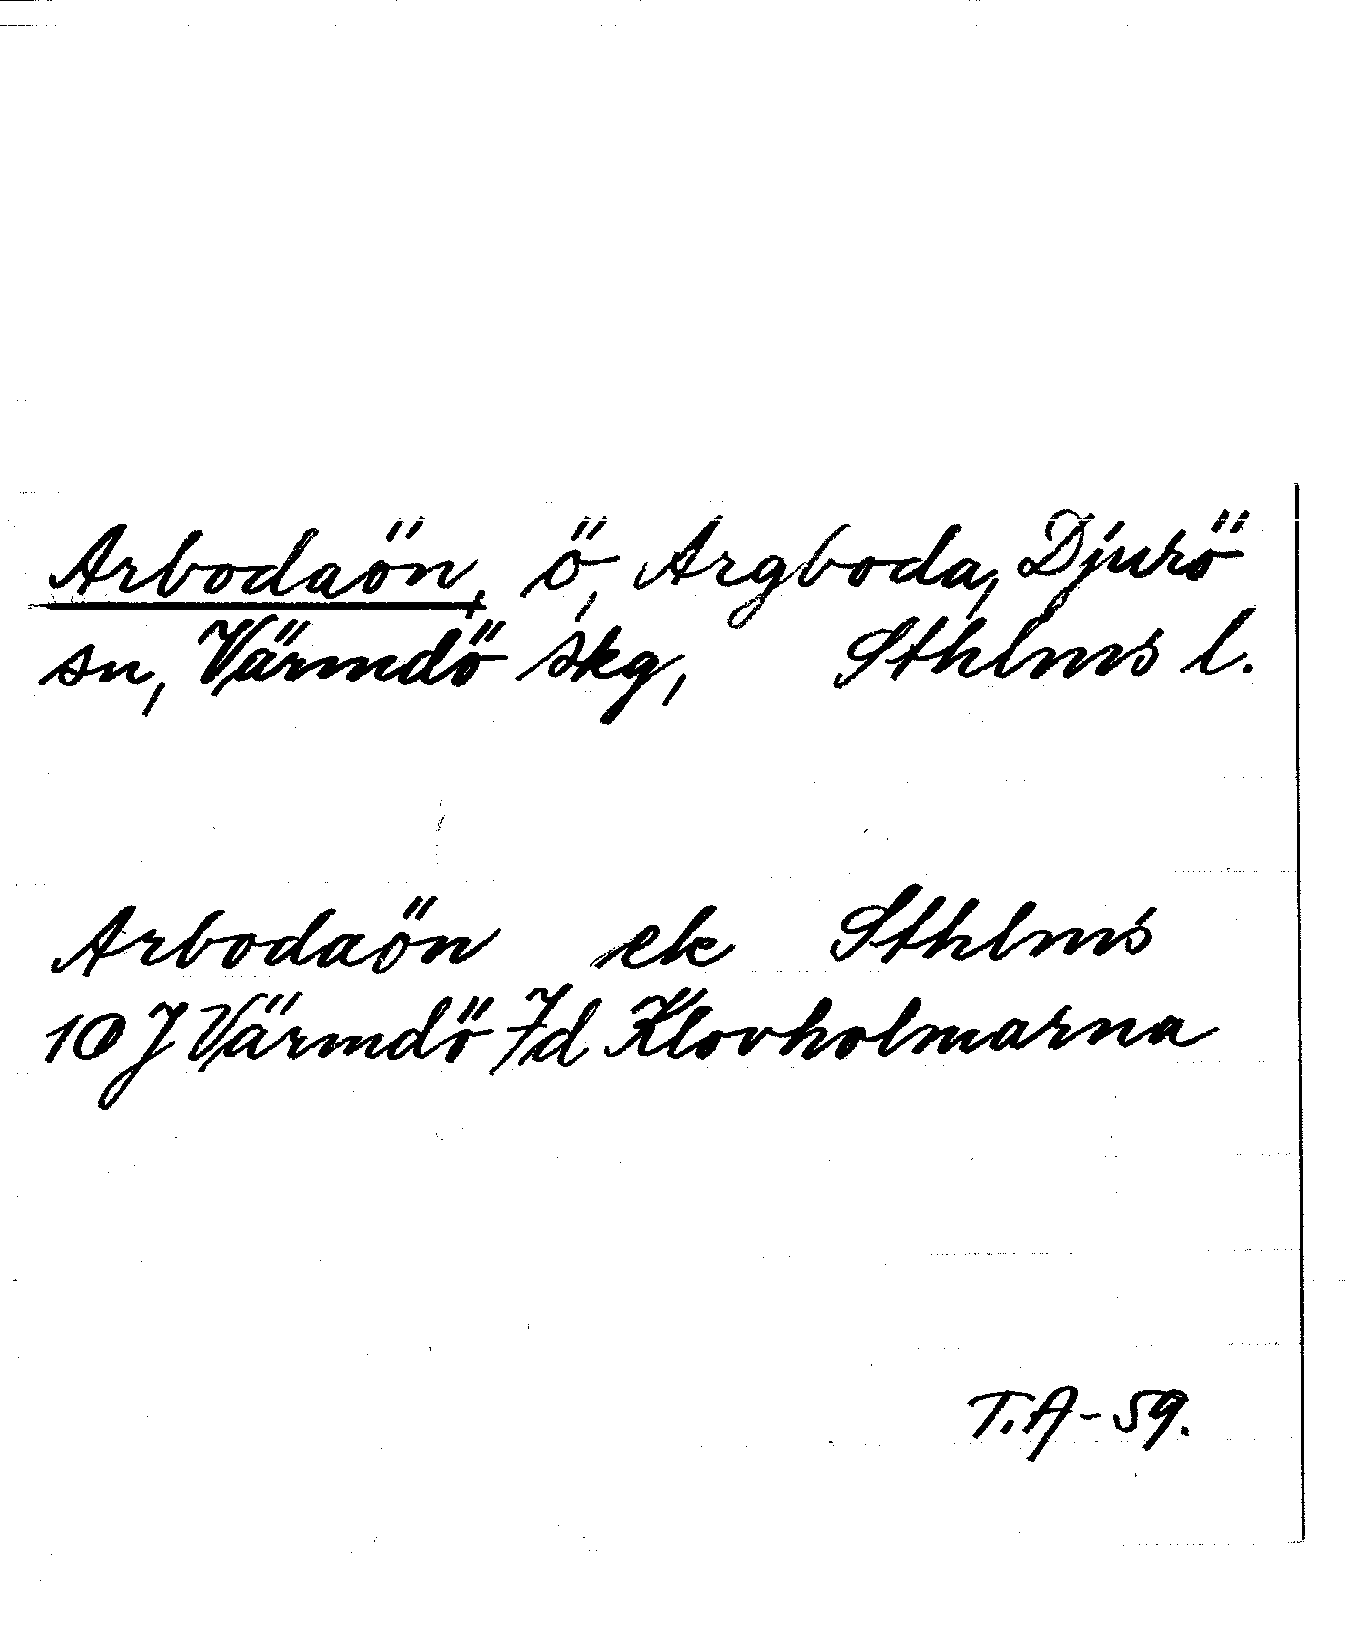 Arbodaön, ö, Argboda, Djurö
sn, Värmdö skg, Sthlms l.
Arbodaön ek Sthlms
10 J Värmdö 7d Klovholmarna
T.A-59.